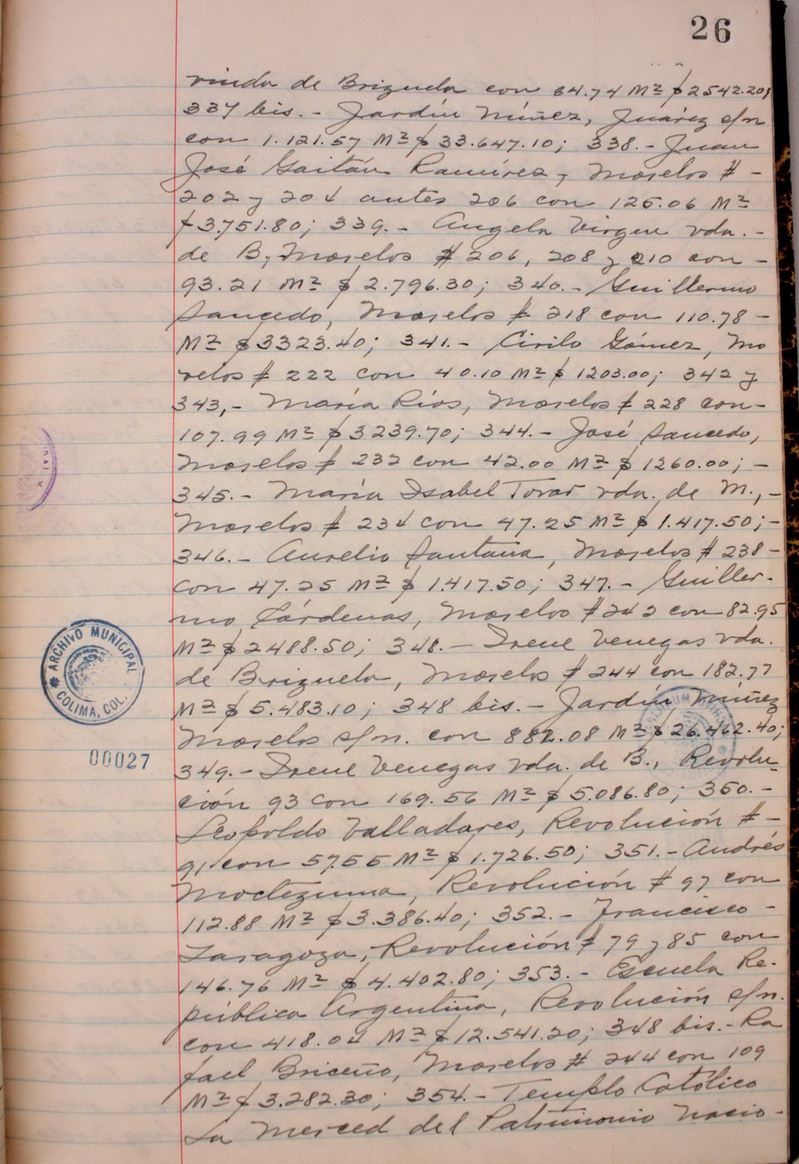 26
viuda de Brizuela con 84.74 M² $2542.20;
337 bis.- Jardín Núñez, Juárez s/n
con 1.121.57 M² $33.647.10; 338.- Juan
José Gaitán Ramírez, Morelos #-
202 y 204 antes 206 con 125.06 M²
$3.751.80; 339.- Angela Virgen vda.-
de B, Morelos # 206, 208 y 210 con-
93.21 M² $2.796.30; 340.- Guillermo
Saucedo, Morelos # 218 con 110.78-
M² $3323.40; 341.- Cirilo Gómez, Mo
relos # 222 con 40.10 M² $1203.00; 342 y
343,- María Ríos, Morelos # 228 con-
107.99 M² $3239.70; 344.- José Saucedo,
Morelos # 232 con 42.00 M² $1260.00;-
345.- María Isabel Tovar vda. de M.,-
Morelos # 234 con 47.25 M² $1.417.50;-
346.- Aurelio Santana, Morelos # 238-
con 47.25 M² $1.417.50; 347.- Guiller-
mo Cárdenas, Morelos # 242 con 82.95
M² $2488.50; 348.- Irene Venegas vda.
de Brizuela, Morelos # 244 con 182.77
M² $5.483.10; 348 bis.- Jardín Núñez
Morelos s/n. con 882.08 M² $26.462.40;
349.- Irene Venegas vda. de B., Revolu-
ción 93 con 169.56 M² $5.086.80; 350.-
Leopoldo Valladares, Revolución #-
91 con 57.55 M² $1.726.50; 351.- Andrés
Moctezuma, Revolución # 97 con
112.88 M² $3.386.40; 352.- Francisco-
Zaragoza, Revolución # 79 y 85 con
146.76 M² $4.402.80; 353.- Escuela Re-
pública Argentina, Revolución s/n.
con 418.04 M² $12.541.20; 348 bis.- Ra
fael Briceño, Morelos # 244 con 109
M² $3.282.30; 354.- Templo Católico
La Merced del Patrimonio Nacio-
ARCHIVO MUNICIPAL
COLIMA, COL.
00027